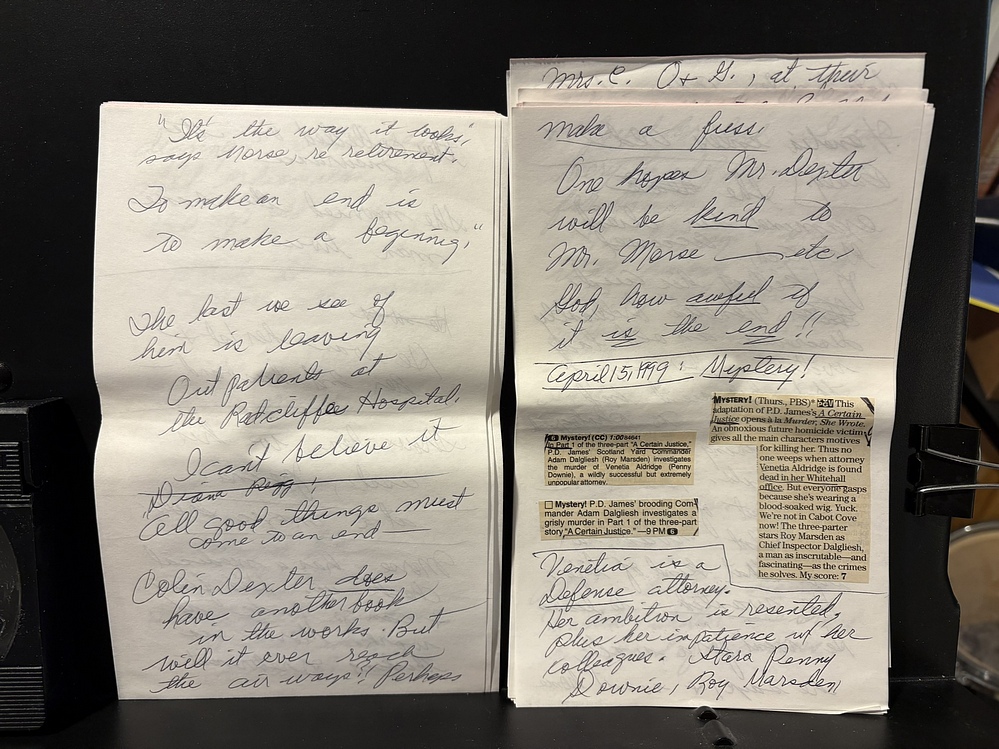 "It's the way it looks,'
says Morse, re retirement.
To make an end is
to make a beginning."
The last we see of
him is leaving
Out patients at
the Ratcliffe Hospital.
I cant believe it
Diana Rigg:
All good things must
come to an end —
Colin Dexter does
have another book
in the works. But
will it ever reach
the air ways? Perhaps
Mrs. C. O + G., at their
make a fuss.
One hopes Mr. Dexter
will be kind to
Mr. Morse — etc.
God, how awful if
it is the end!!
April 15, 1999: Mystery!
Mystery! (CC) 1:00
In Part 1 of the three-part "A Certain Justice,"
P.D. James' Scotland Yard Commander
Adam Dalgliesh (Roy Marsden) investigates
the murder of Venetia Aldridge (Penny
Downie), a wildly successful but extremely
unpopular attorney.
Mystery! P.D. James' brooding Com-
mander Adam Dalgliesh investigates a
grisly murder in Part 1 of the three-part
story "A Certain Justice." —9 PM 6
MYSTERY! (Thurs., PBS)* This
adaptation of P.D. James's A Certain
Justice opens à la Murder, She Wrote.
An obnoxious future homicide victim
gives all the main characters motives
for killing her. Thus no
one weeps when attorney
Venetia Aldridge is found
dead in her Whitehall
office. But everyone gasps
because she's wearing a
blood-soaked wig. Yuck.
We're not in Cabot Cove
now! The three-parter
stars Roy Marsden as
Chief Inspector Dalgliesh,
a man as inscrutable—and
fascinating—as the crimes
he solves. My score: 7
Venetia is a
Defense attorney.
Her ambition is resented,
plus her impatience w/ her
colleagues. Stars Penny
Downie, Roy Marsden